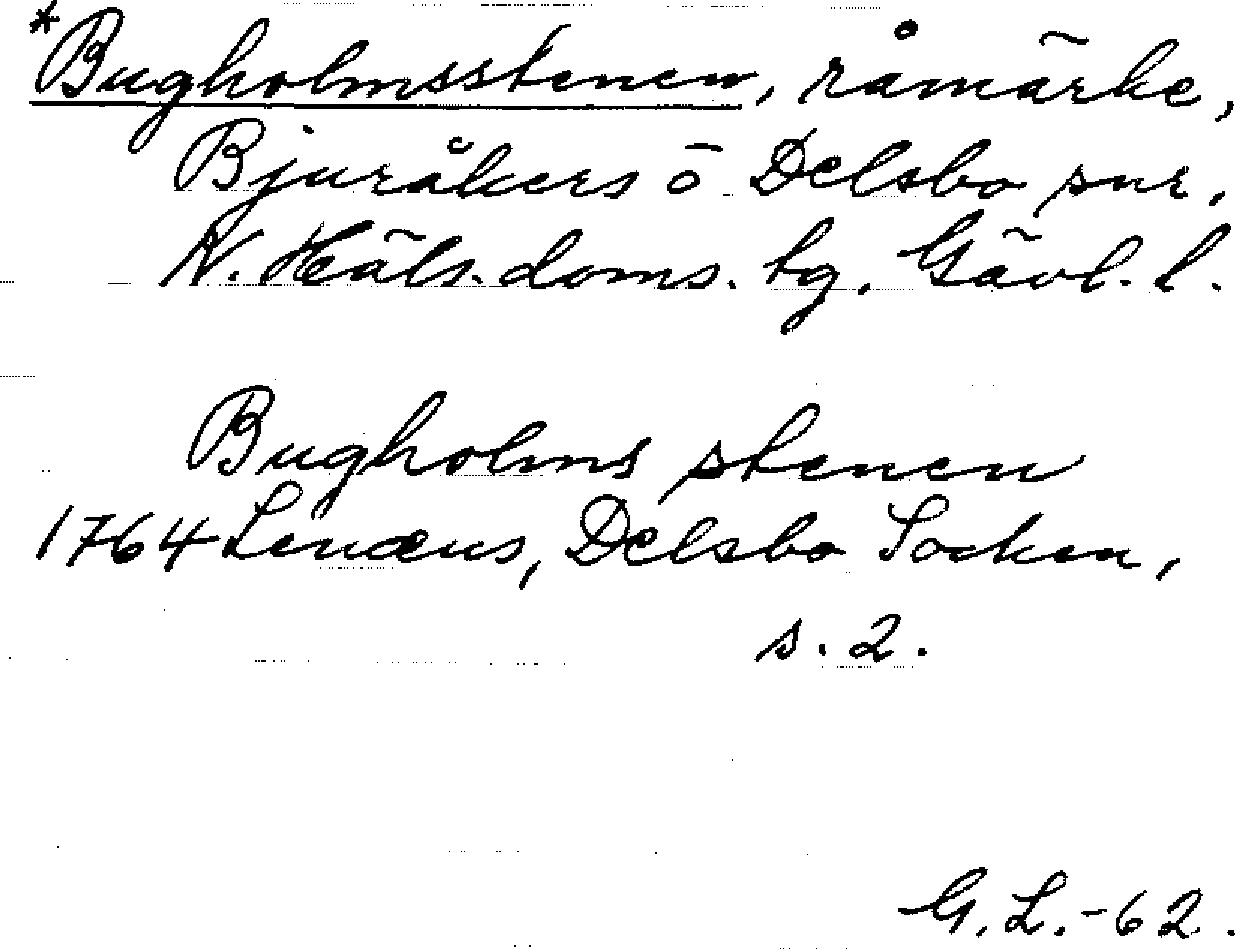 *Bugholmsstenen, råmärke,
Bjuråkers o Delsbo snr,
N. Häls. doms. tg, Gävl. l.
Bugholms stenen
1764 Lenæus, Delsbo Socken,
s. 2.
G. L. -62.